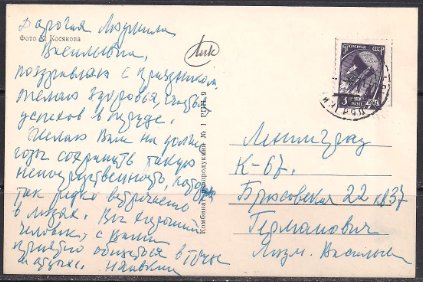 Дорогая Людмила
Васильевна,
поздравляю с праздником
желаю здоровья, счастья,
успехов в труде.
Желаю Вам на долгие
годы сохранить такую
непосредственность, которая
так редко встречается
в людях. Вы хороший
человек, с Вами
приятно общаться
Фото Косякова
Комбинат цветной печати
№ 1
СССР
Ленинград
К-67.
Брюсовская 22 кв 37
Германович
Людм. Васильев